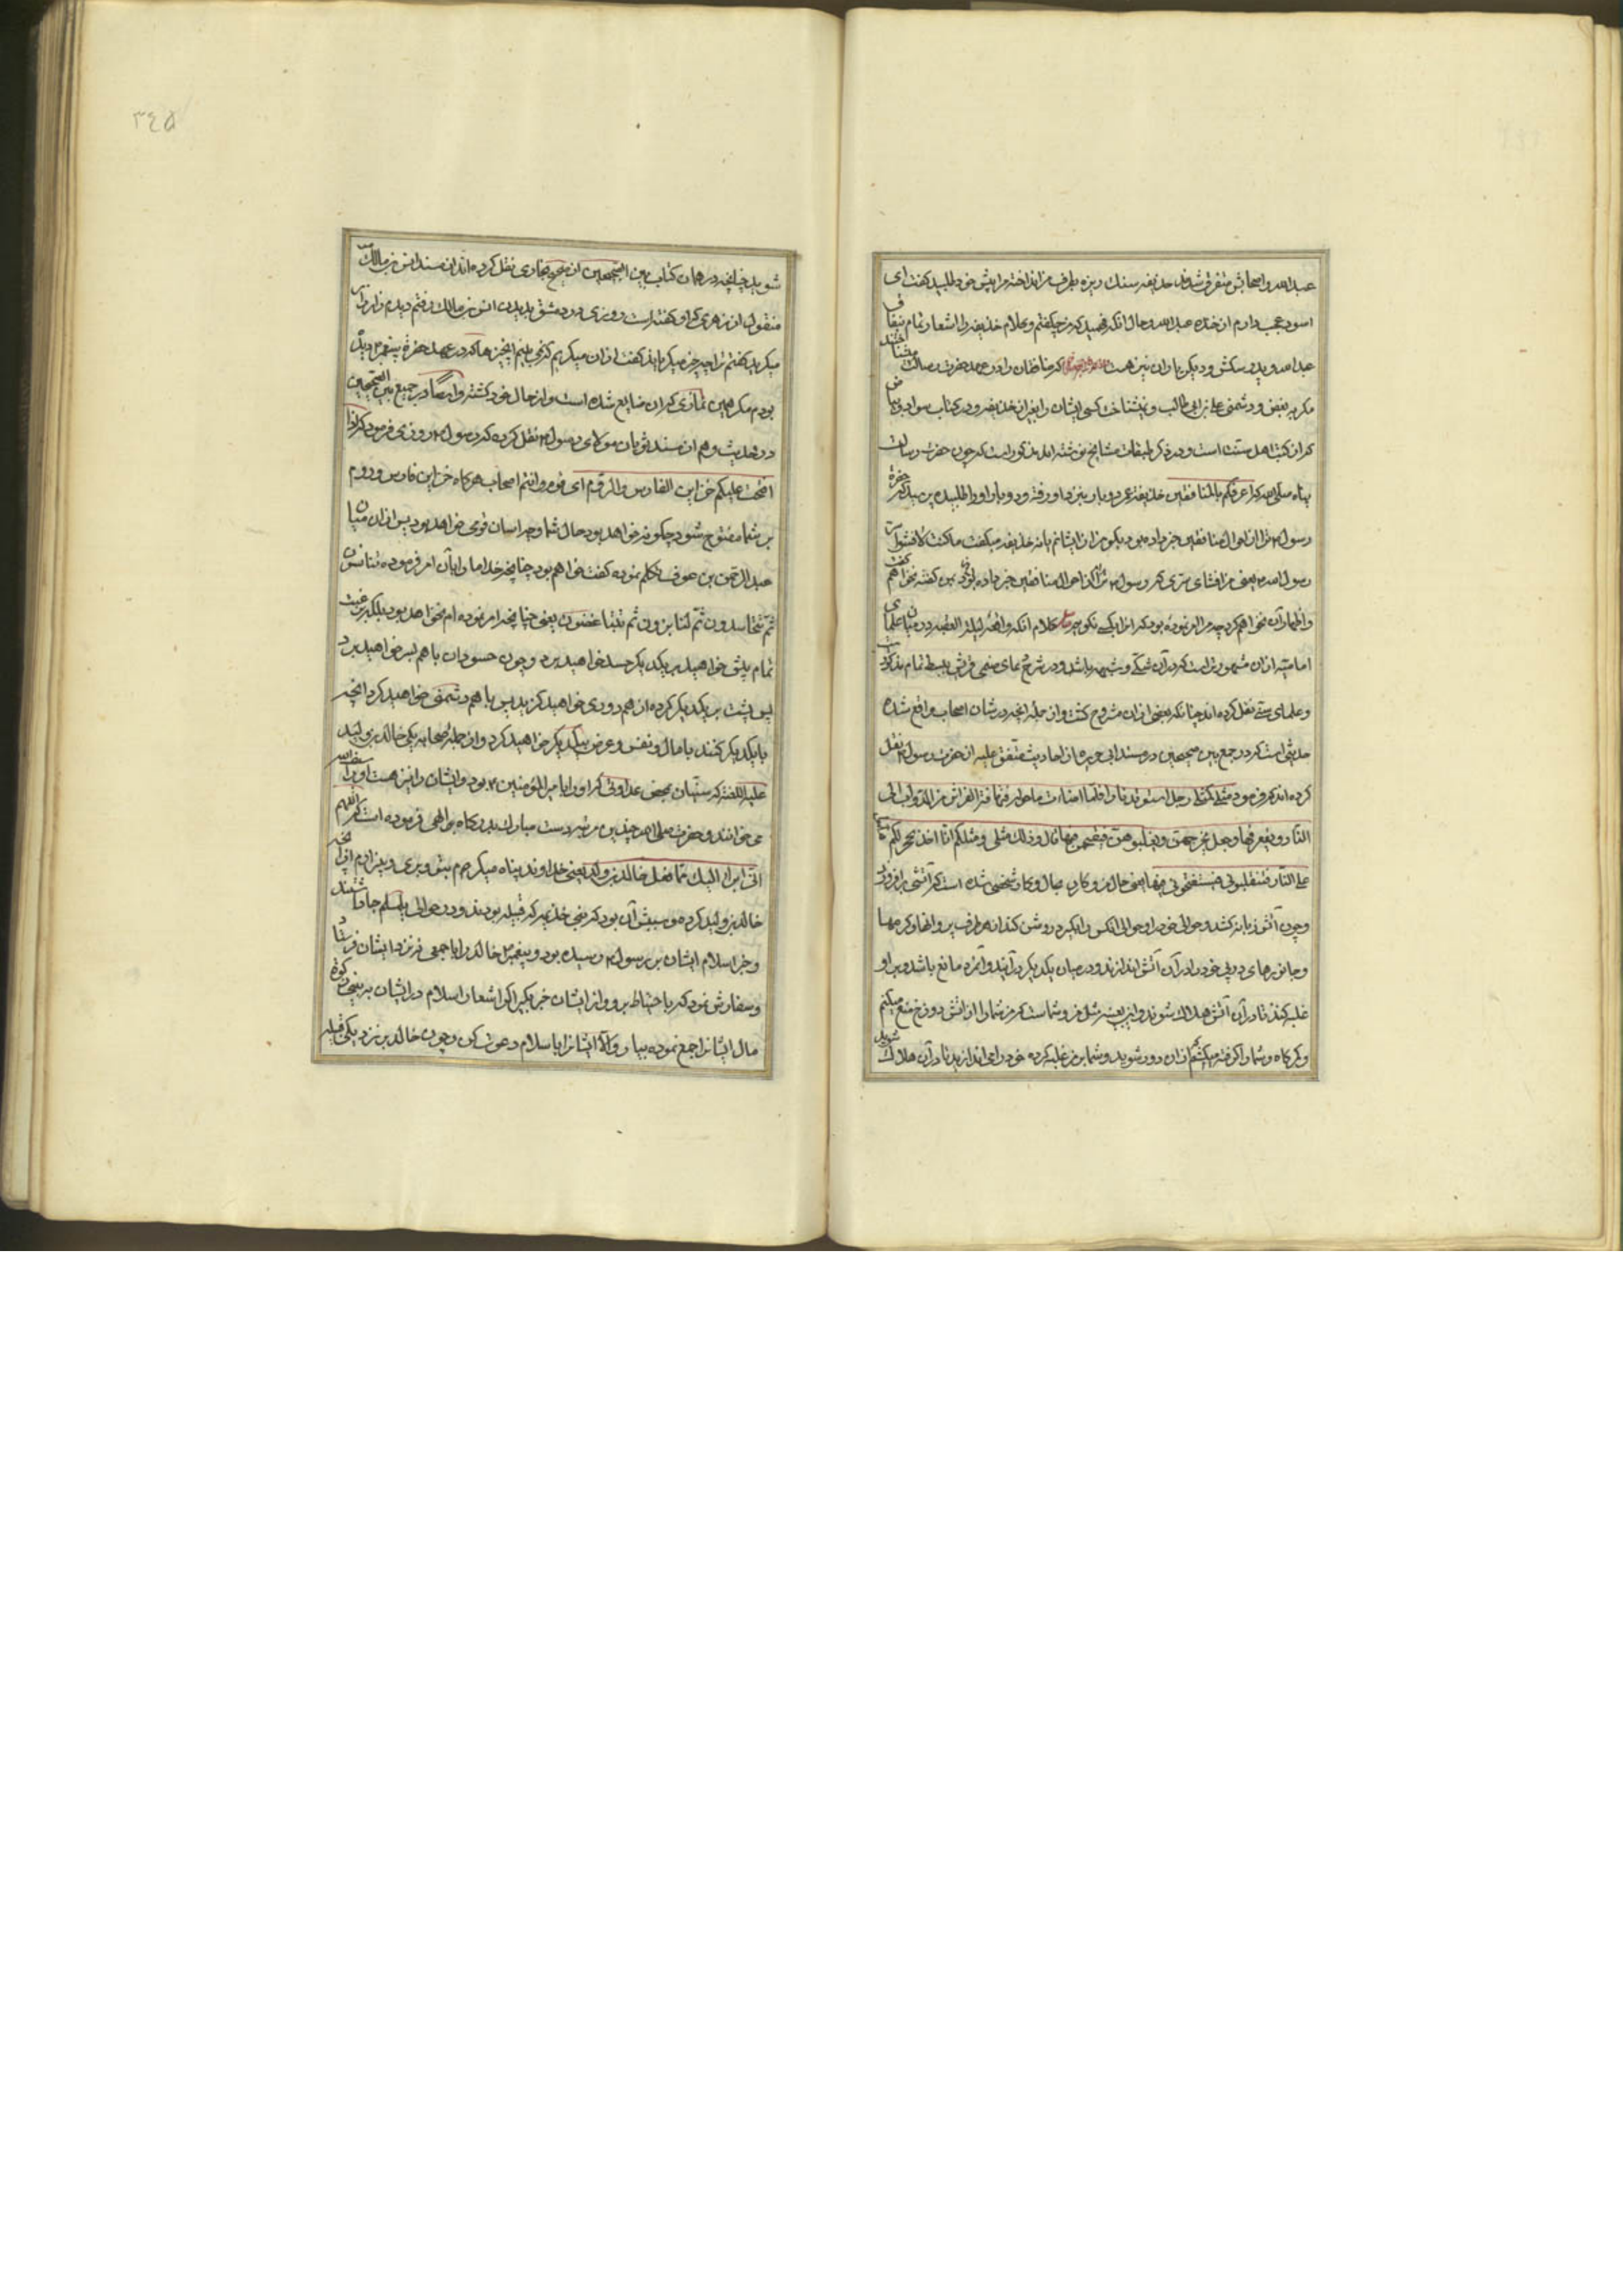 عبدالله و اصحابش متفرق شدند حذیفه سنك ریزه بطرف من انداخته مرا پیش خود طلبید کفت ای
اسود عجب دارم از خنده عبدالله و حال انکه فهمید که من چه کفتم و بکلام حذیفه را اشعار تمام بنفاق
عبدالله و پدر سکش و دیکر یاران نیز هست که منافقان را در عهد حضرت رسالت
مکر به بغض و دشمنی علی بن ابی طالب و نشناخت کسی ایشان را بغیر از حذیفه و در کتاب
که از کتب اهل سنت است و در ذکر طبقات مشایخ نوشته اند مذکور است که چون حضرت رسالت
پناه حذیفه عمر دو بار نزد او رفته و دو بار او را طلبیده پرسید که حضرة
رسول ترا از احوال منافقین خبر داده بود بکو من از ایشانم یا نه حذیفه میکفت ما کنت لافشو سر
رسول الله یعنی من افشای سری که رسول مرا از احوال منافقین خبر داده بود نمی کنم کفته نخواهم کفت
و اظهار آن نخواهم کرد چه مرا امر نموده بود که انرا بکسی نکویم کلام انکه واقعه لیلة العقبه در میان علمای
امامیه از ان مشهورتر است که در آن شکی و شبهه باشد و در شرح دعای صنمی قریش ببسط تمام مذکور است
و علمای سنی نقل کرده اند چنانکه بعضی از ان مشروح کشت و از جمله انچه در شان اصحاب واقع شده
حدیثی است که در جمع بین صحیحین در مسند ابی هریره از احادیث متفق علیه از حضرت رسول نقل
کرده اند که فرمود مثلی کمثل رجل استوقد نارا فلما اضاءت ما حولها الفراش من الدواب الی
النار و یقعن فیها و جعل یحجزهن و یغلبونه فیقتحمن فیها قال و ذلك مثلی و مثلکم انا اخذ بحجزکم
علی النار فتغلبونی فتقتحمون فیها یعنی حال من و کار من بحال و کار شخصی شده است که آتشی برافروزد
و چون آتش زبانه کشد و حوالی خود را و حوالی انکس را بکیرد روشن کند از هر طرف پروانها و کرمها
و جانورهای دیکر خود را در آن آتش اندازند و در میان یکدیکر در آیند و آن مرد مانع باشد و بر او
غلبه کنند تا در آن آتش هلاك شوند و این بعینه مثل من و شماست که من شما را از اتش دوزخ منع میکنم
و کمرکاه شما را کرفته میکشم که از ان دور شوید و شما بر من غلبه کرده خود را می اندازید تا در آن هلاك شوید
شوید چنانچه در همان کتاب بین الصحیحین از صحیح بخاری نقل کرده اند از مسند انس بن مالك
منقول از زهری که او کفته است روزی در دمشق بدیدن انس بن مالك رفتم دیدم زار زار
میکرید کفتم ترا چه چیز میکریاند کفت از ان میکریم که نمی بینم از چیزها که در عهد حضرة پیغمبر دیده
بودم مکر همین نمازی که آن ضایع شده است و از حال خود کشته و ایضا در جمع بین الصحیحین
در حدیث و هم از مسند ثوبان مولای رسول نقل کرده که رسول روزی فرمود که اذا
افتحت علیکم خزاین الفارس و الروم ای قوم انتم اصحاب هرکاه خزاین فارس و روم
بر شما مفتوح شود چکونه خواهد بود حال شما و چه اسان قومی خواهد بود پس از ان میان
عبدالرحمن بن عوف تکلم نموده کفت خواهم بود چنانچه خدا ما را بآن امر فرموده تتنافسون
ثم تتحاسدون ثم تتدابرون ثم تتباغضون یعنی چنانچه امر نموده ام نخواهد بود بلکه رغبت
تمام پیش خواهید بر یکدیکر حسد خواهید برد و چون حسودان با هم بسر خواهید برد
پس پشت بر یکدیکر کرده از هم دوری خواهید کزید پس با هم دشمنی خواهید کرد انچه
با یکدیکر کنند با مال و نفس و عرض یکدیکر خواهید کرد و از جمله صحابه یکی خالد بن ولید
علیه اللعنه که سنیان بمحض عداوتی که او را با امیر المؤمنین بود و ایشان را نیز هست او را سیف الله
می خوانند و حضرت صلی الله چندین مرتبه دست مبارك بدرکاه الهی فرموده است که اللهم
انی ابرء الیك مما فعل خالد بن ولید یعنی خداوندا پناه میکیرم بتو و بری و بیزارم از انچه
خالد بن ولید کرده و سببش آن بود که بنی خذیمه که قبیله بودند و در حوالی یلملم جا داشتند
و خبر اسلام ایشان بر رسول رسیده بود و پیغمبر خالد را با جمعی نزد ایشان فرستاد
و سفارش نمود که با احتیاط برو و از ایشان خبر بکیر اکر اشعار اسلام در ایشان به بینی زکوة
مال ایشانرا جمع نموده بیار و الا ایشانرا با سلام دعوت کن و چون خالد بن نزدیکی قبیله
٣٤٥